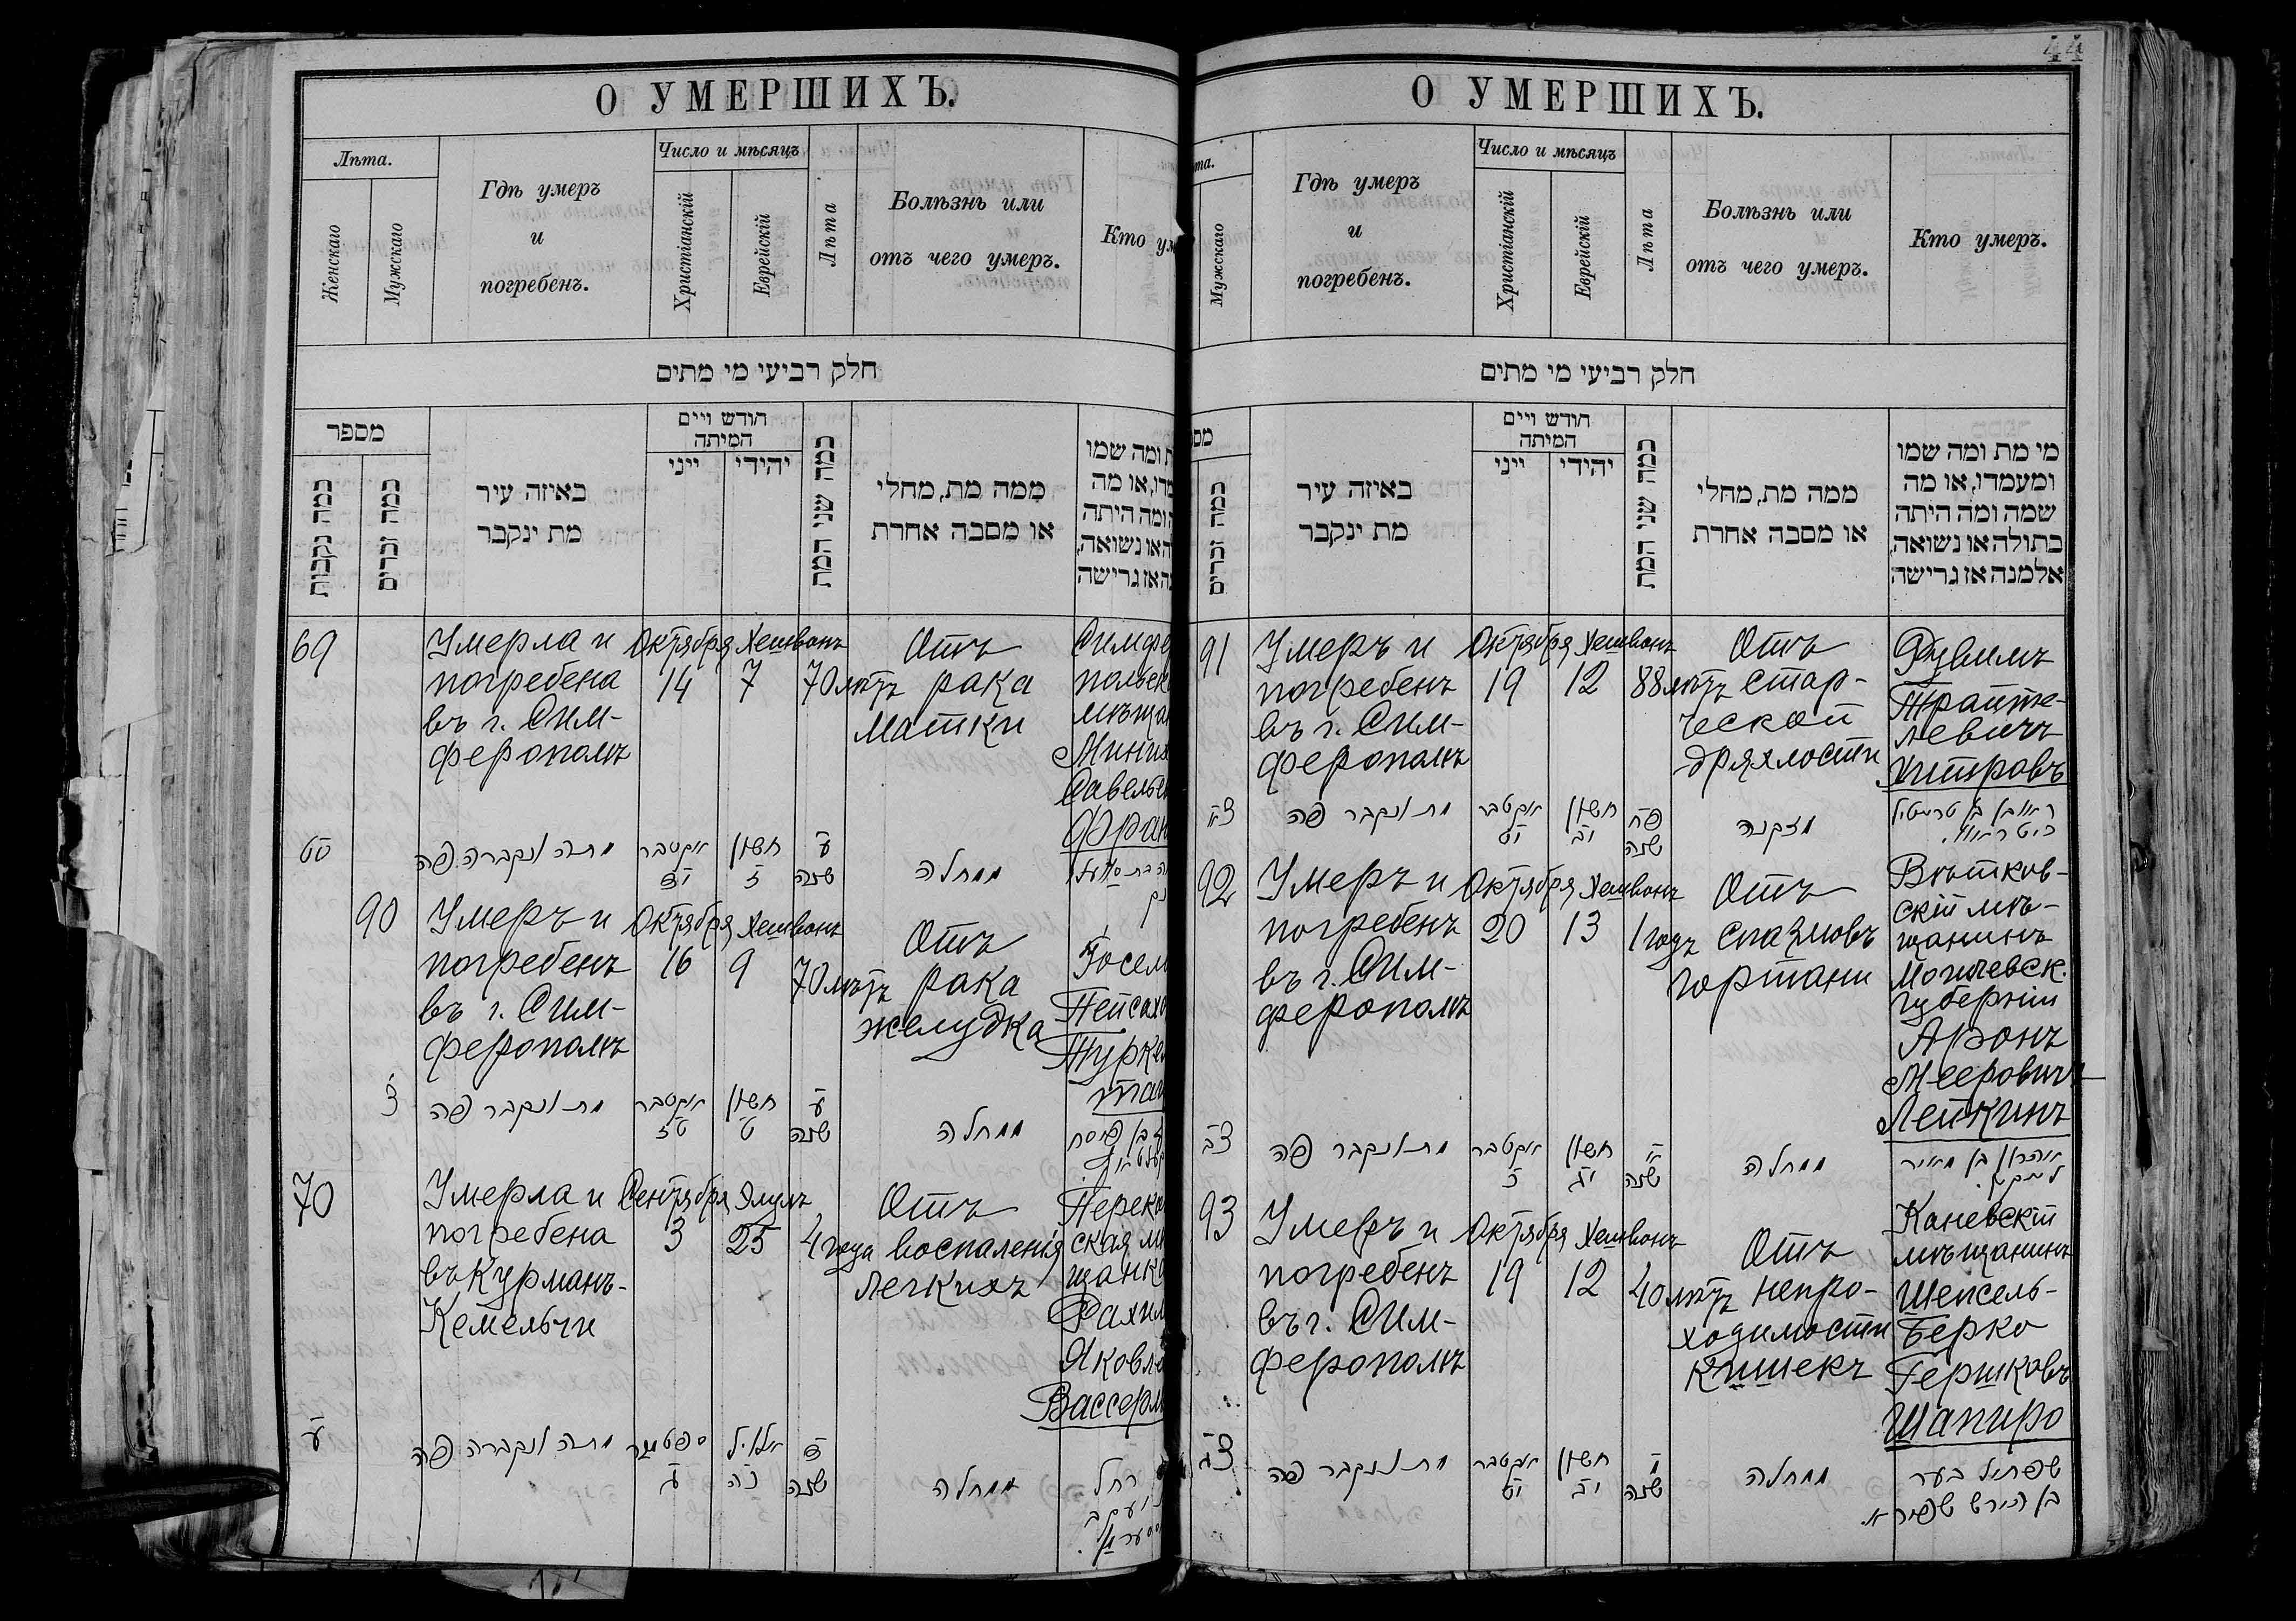 44
О УМЕРШИХЪ.
Лѣта.
Женскаго
Мужскаго
Гдѣ умеръ
и
погребенъ.
Число и мѣсяцъ
Христіанскій
Еврейскій
Лѣта
Болѣзнь или
отъ чего умеръ.
Кто ум
חלק רביעי מי מתים
מספר
כמה נקבות
כמה זכרים
באיזה עיר
מת ינקבר
חודש ויים
המיתה
ייני
יהידי
כמה שני המת
ממה מת, מחלי
או מסבה אחרת
ת ומה שמו
מדו, או מה
ומה היתה
ה או נשואה,
נה אז גרישה
69
Умерла и
погребена
въ г. Сим-
ферополѣ
Октября
14
Хешвонъ
7
70 лѣтъ
Отъ
рака
матки
Симфе
польск
мѣща
Миних
Савелье
Фран
סט
מתה ונקברה פה
אקטבר
חשון
ז
ע
שנה
ממחלה
90
Умеръ и
погребенъ
въ г. Сим-
ферополѣ
Октября
16
Хешвонъ
9
70 лѣтъ
Отъ
рака
желудка
Госел
Пейсахо
Турке
та
צ
מת ונקבר פה
אקטבר
טז
חשון
ט
ע
שנה
ממחלה
בן פיסח
70
Умерла и
погребена
въ Курманъ-
Кемельчи
Сентября
3
Элулъ
25
4 года
Отъ
воспаленія
легкихъ
Переко
ская мѣ
щанка
Рахил
Яковле
Вассерм
ע
מתה ונקברה פה
ספטמבר
אלול
כה
שנה
ממחלה
רחל
О УМЕРШИХЪ.
та.
Мужскаго
Гдѣ умеръ
и
погребенъ.
Число и мѣсяцъ
Христіанскій
Еврейскій
Лѣта
Болѣзнь или
отъ чего умеръ.
Кто умеръ.
חלק רביעי מי מתים
מס
כמה זכרים
באיזה עיר
מת ינקבר
חודש ויים
המיתה
ייני
יהידי
כמה שני המת
ממה מת, מחלי
או מסבה אחרת
מי מת ומה שמו
ומעמדו, או מה
שמה ומה היתה
בתולה או נשואה,
אלמנה אז גרישה
91
Умеръ и
погребенъ
въ г. Сим-
ферополѣ
Октября
19
Хешвонъ
12
88 лѣтъ
Отъ
стар-
ческой
дряхлости
Рувимъ
Трайте-
левичъ
Хитровъ
צא
מת ונקבר פה
אקטבר
יט
חשון
יב
פח
שנה
מזקנה
ראובן בן טרייטיל
92
Умеръ и
погребенъ
въ г. Сим-
ферополѣ
Октября
20
Хешвонъ
13
1 годъ
Отъ
спазмовъ
гортани
Вѣтков-
скій мѣ-
щанинъ
Могилевск.
губерніи
Аронъ
Мееровичъ
Лейкинъ
צב
מת ונקבר פה
אקטבר
חשון
יג
א
שנה
ממחלה
אהרון בן מאיר
לייקין
93
Умеръ и
погребенъ
въ г. Сим-
ферополѣ
Октября
19
Хешвонъ
12
40 лѣтъ
Отъ
непро-
ходимости
кишекъ
Каневскій
мѣщанинъ
Шепсель-
Берко
Гершковъ
Шапиро
צג
מת ונקבר פה
אקטבר
יט
חשון
יב
מ
שנה
ממחלה
שפסיל בער
בן הירש שפירא.